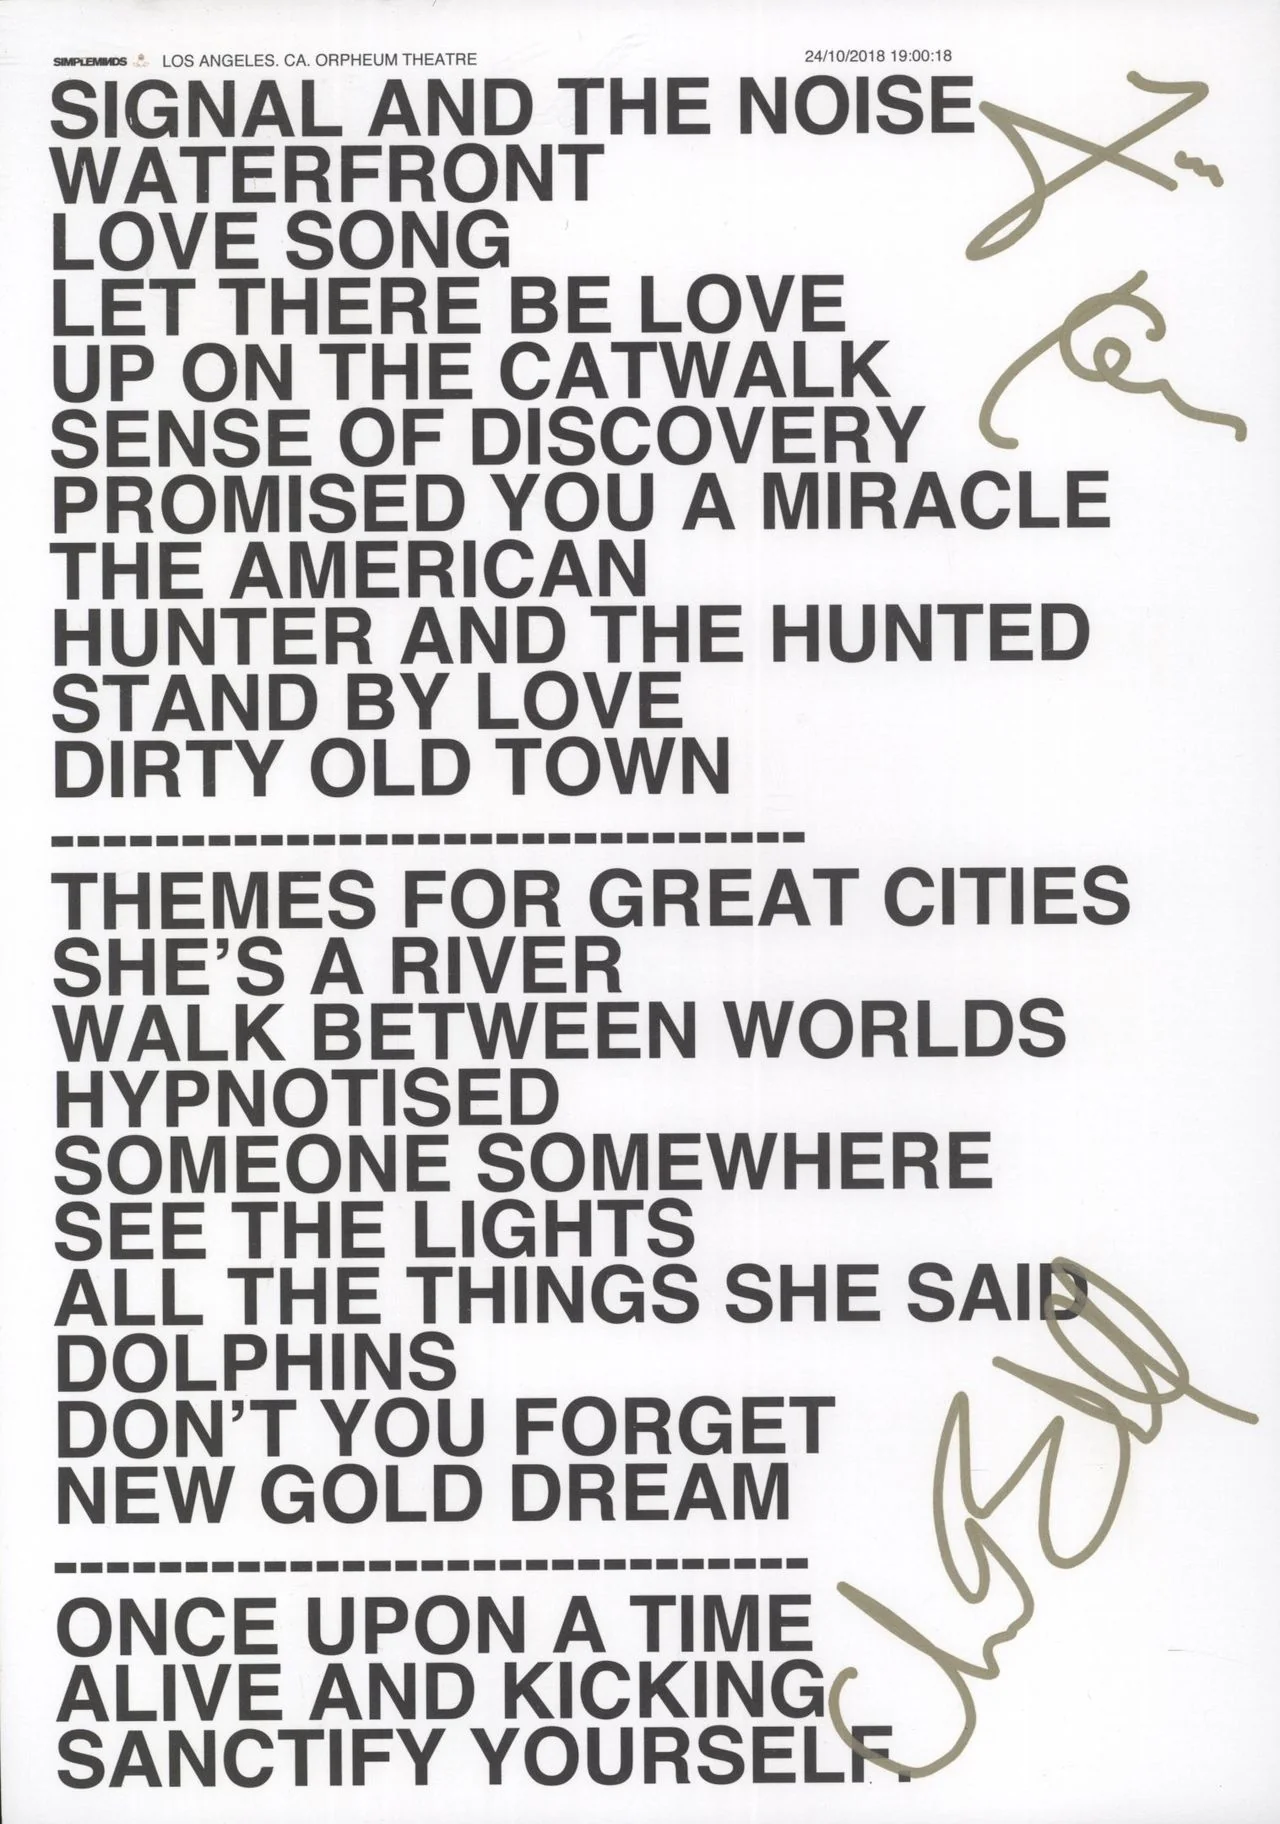 SIMPLEMINDS LOS ANGELES. CA. ORPHEUM THEATRE 24/10/2018 19:00:18
SIGNAL AND THE NOISE
WATERFRONT
LOVE SONG
LET THERE BE LOVE
UP ON THE CATWALK
SENSE OF DISCOVERY
PROMISED YOU A MIRACLE
THE AMERICAN
HUNTER AND THE HUNTED
STAND BY LOVE
DIRTY OLD TOWN
-----------------------------
THEMES FOR GREAT CITIES
SHE’S A RIVER
WALK BETWEEN WORLDS
HYPNOTISED
SOMEONE SOMEWHERE
SEE THE LIGHTS
ALL THE THINGS SHE SAID
DOLPHINS
DON’T YOU FORGET
NEW GOLD DREAM
-----------------------------
ONCE UPON A TIME
ALIVE AND KICKING
SANCTIFY YOURSELF.